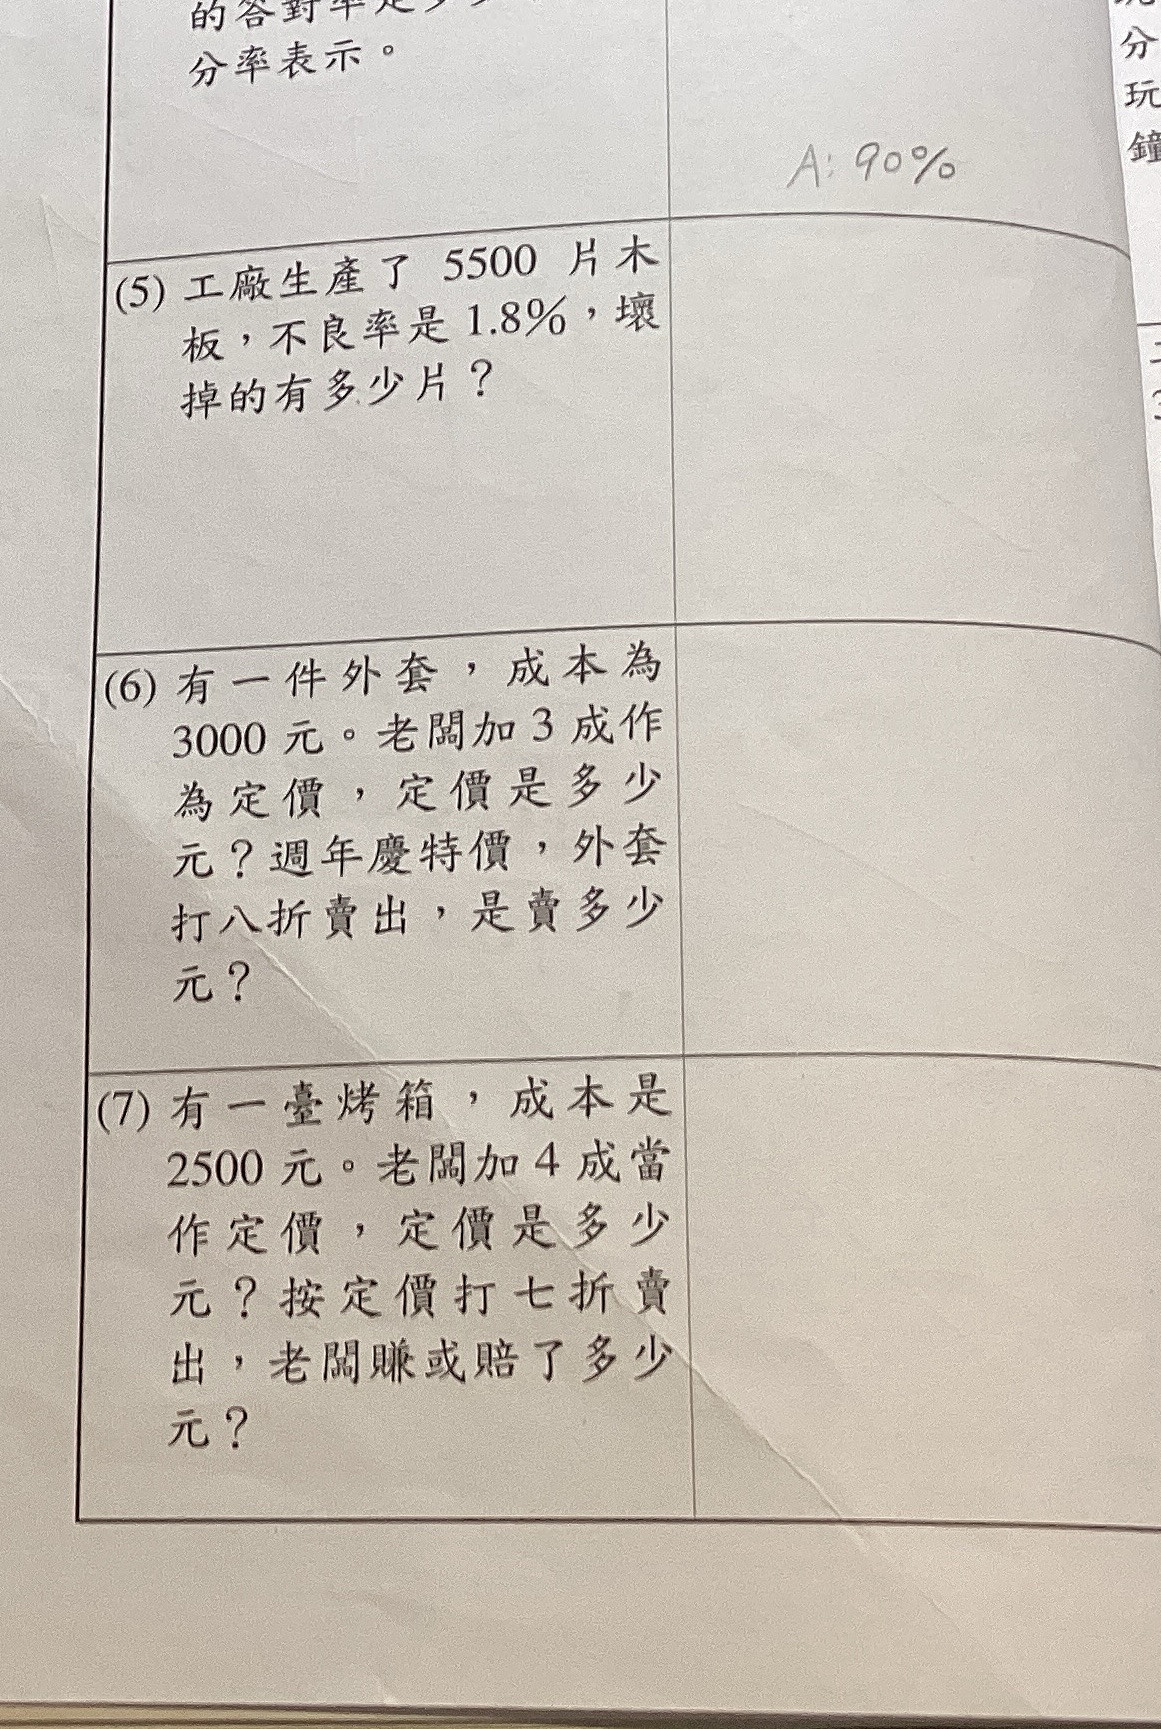 的答對率是多少
分率表示。
A: 90%
(5) 工廠生產了 5500 片木
板，不良率是 1.8%，壞
掉的有多少片？
(6) 有一件外套，成本為
3000 元。老闆加 3 成作
為定價，定價是多少
元？週年慶特價，外套
打八折賣出，是賣多少
元？
(7) 有一臺烤箱，成本是
2500 元。老闆加 4 成當
作定價，定價是多少
元？按定價打七折賣
出，老闆賺或賠了多少
元？
分
玩
鐘